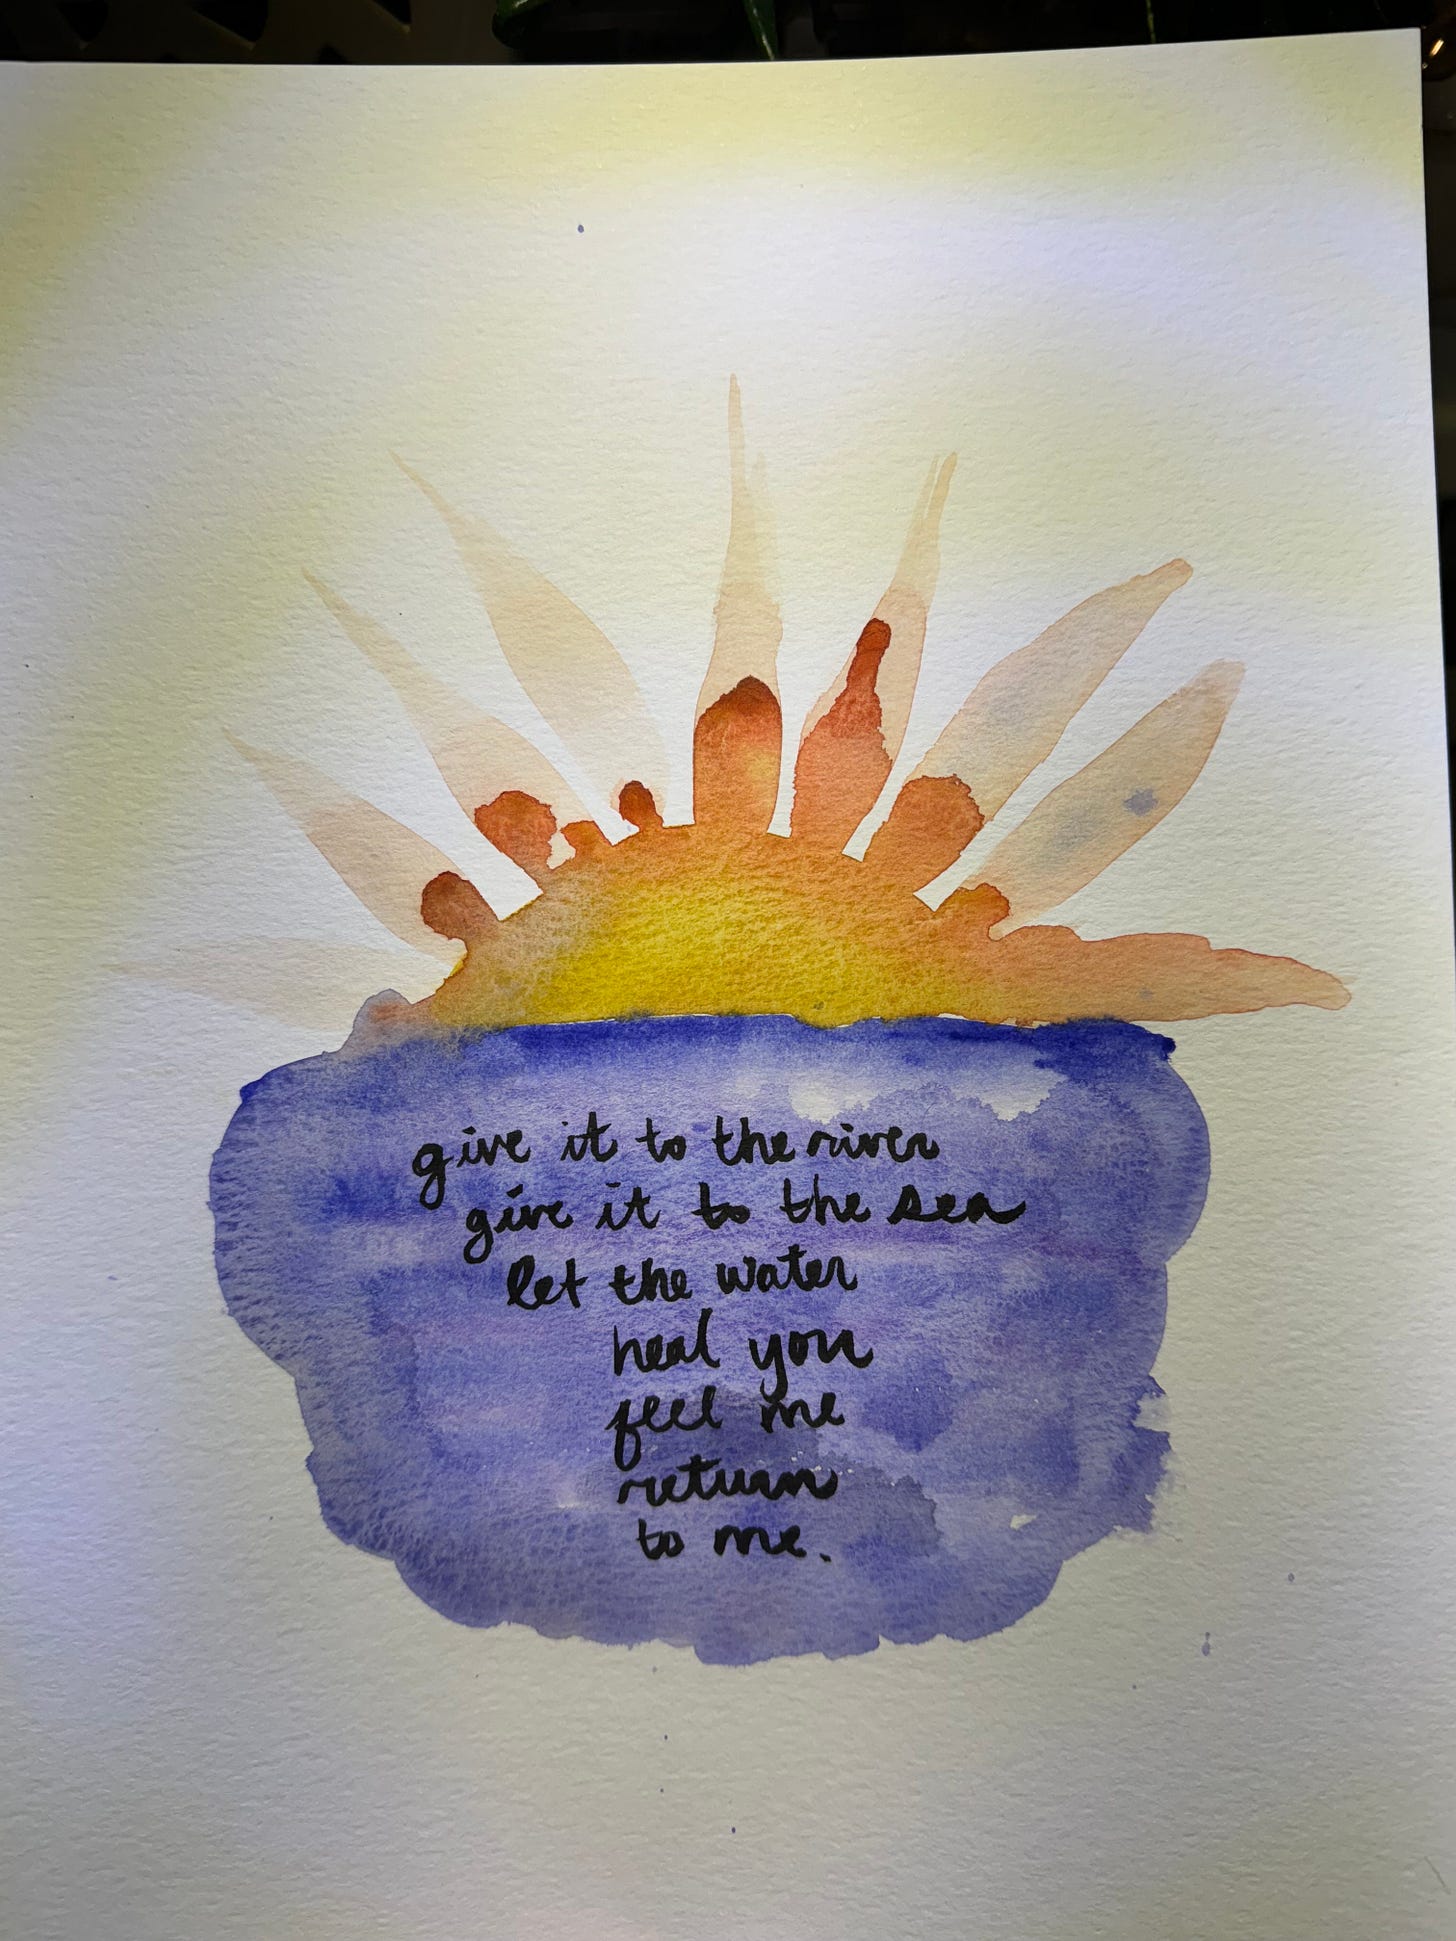 give it to the river
give it to the sea
let the water
heal you
feel me
return
to me.